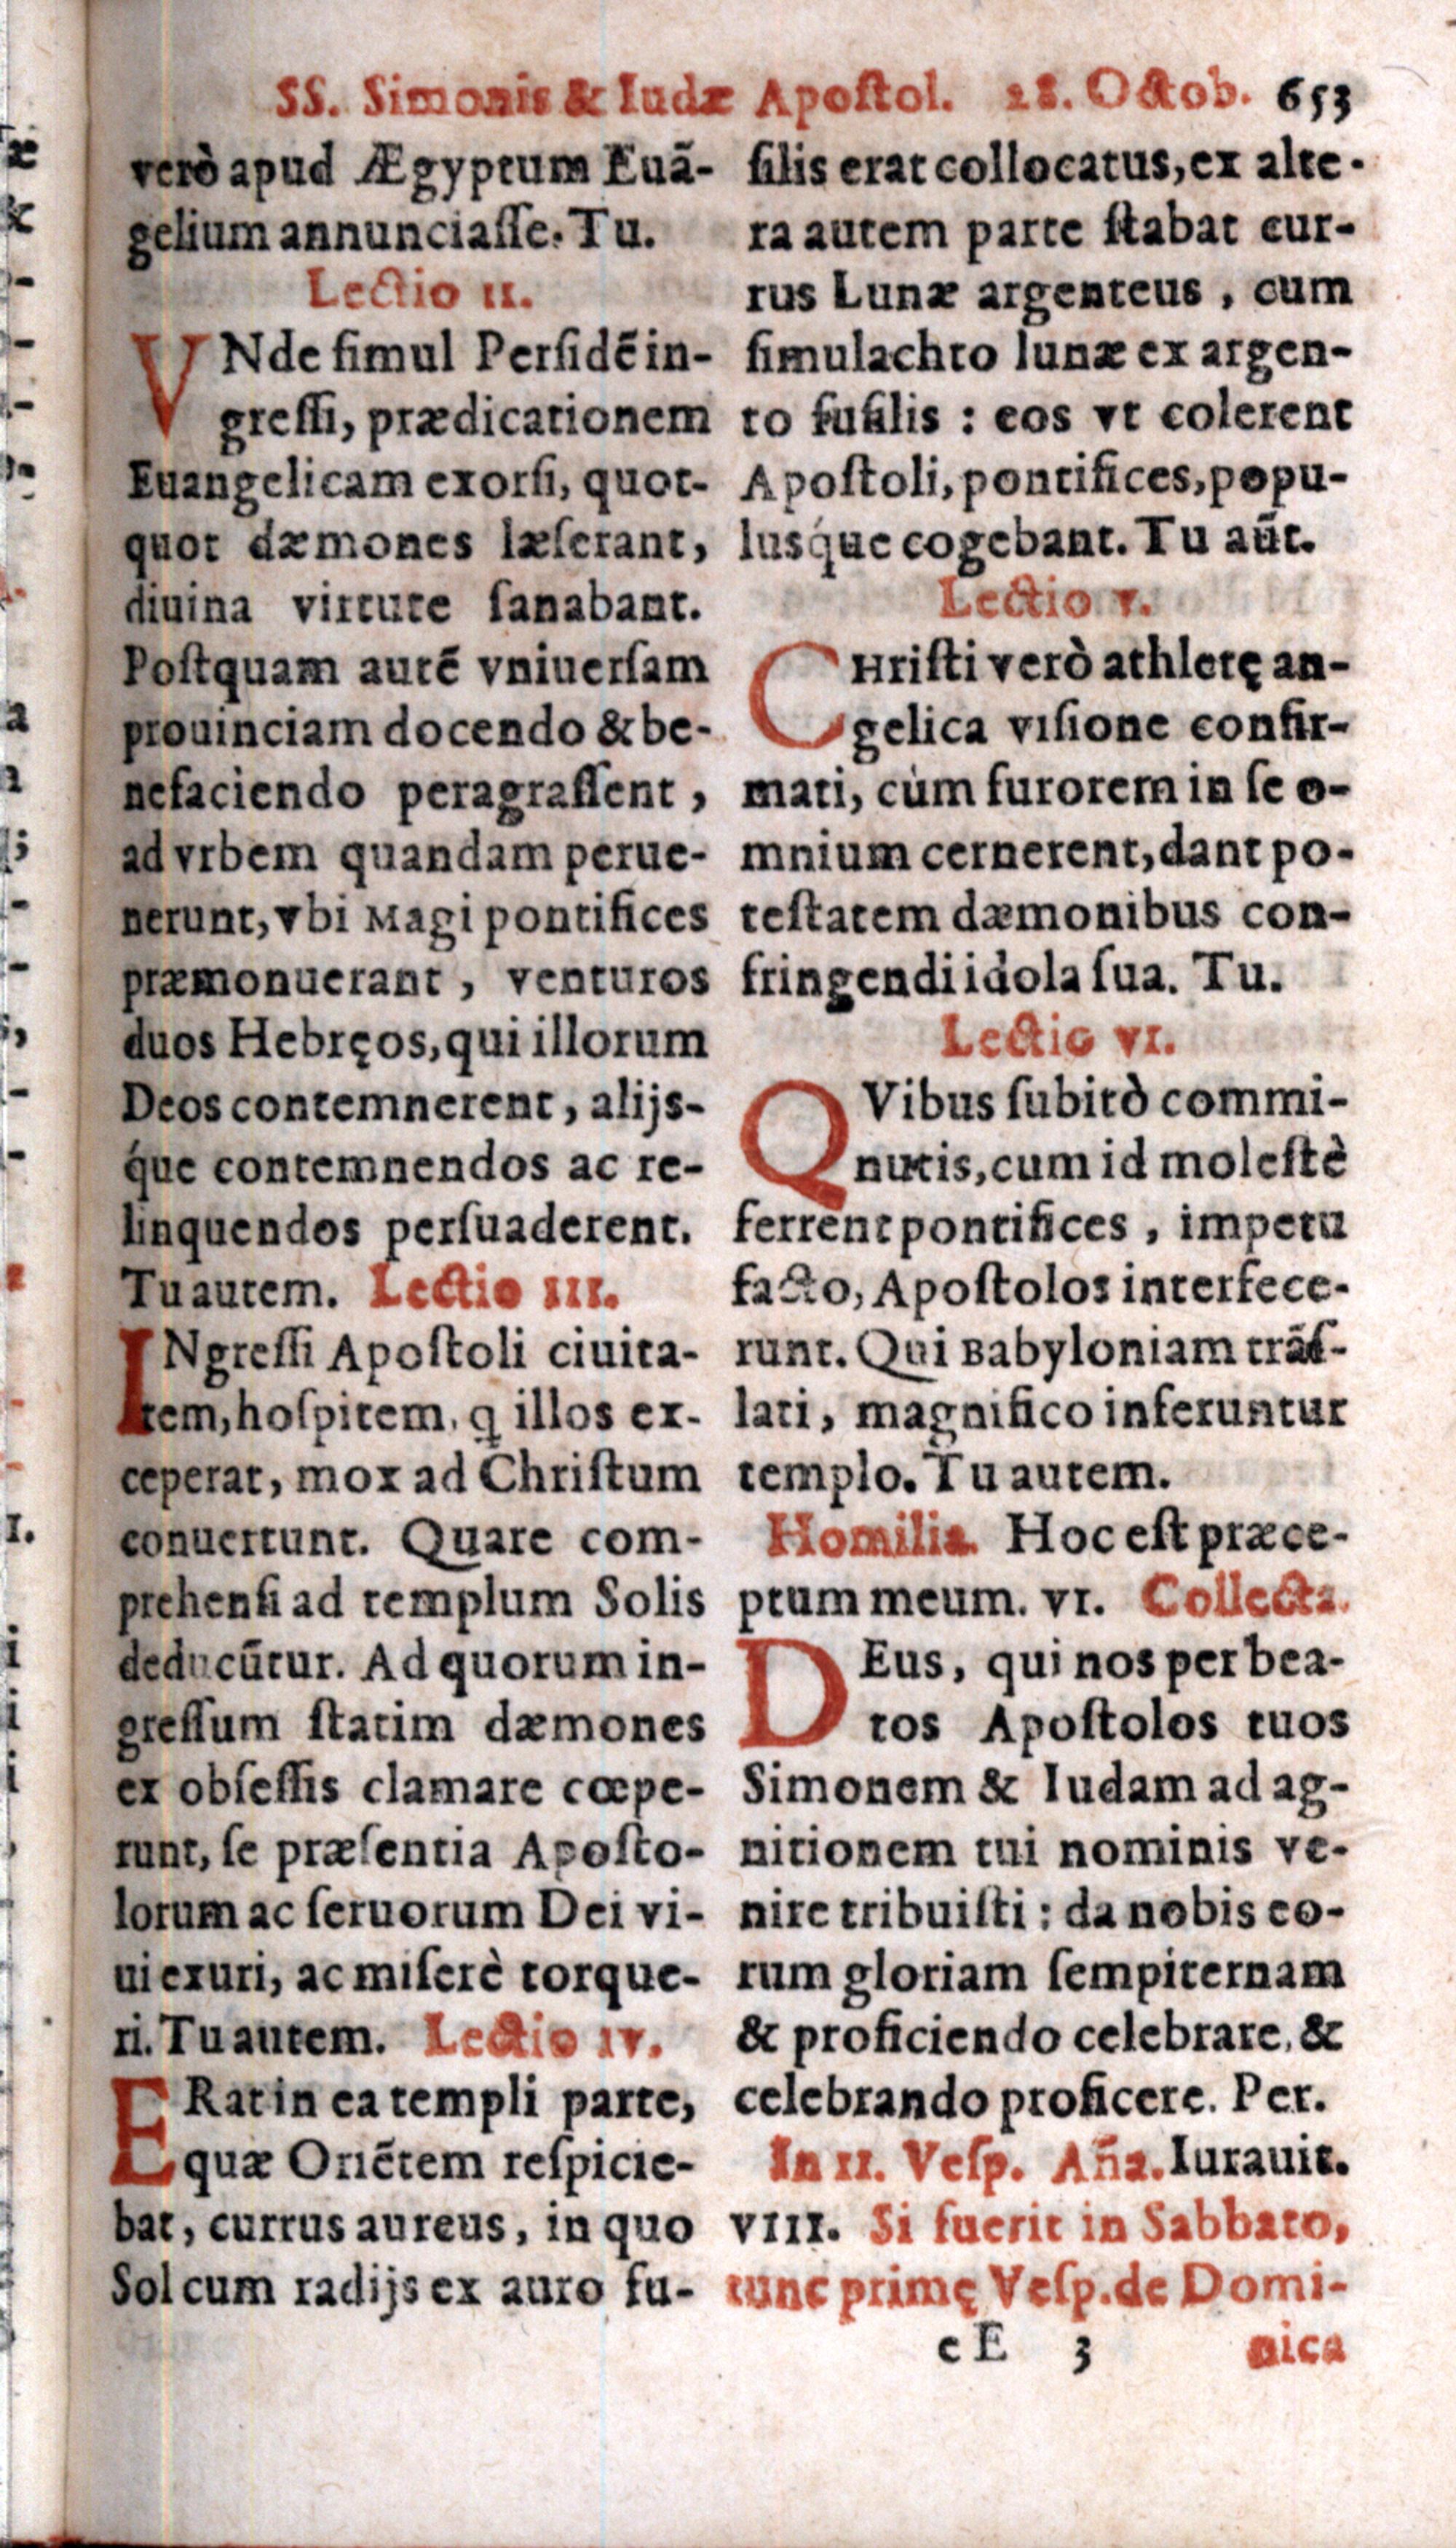 SS. Simonis & Iudæ Apoſtol. 28. Octob. 653
verò apud Ægyptum Euā-
gelium annunciaſſe. Tu.
Lectio II.
VNde ſimul Perſidē in-
greſſi, prædicationem
Euangelicam exorſi, quot-
quot dæmones læſerant,
diuina virtute ſanabant.
Poſtquam autē vniuerſam
prouinciam docendo & be-
nefaciendo peragraſſent,
ad vrbem quandam perue-
nerunt, vbi Magi pontifices
præmonuerant, venturos
duos Hebręos, qui illorum
Deos contemnerent, alijs-
q́ue contemnendos ac re-
linquendos perſuaderent.
Tu autem. Lectio III.
INgreſſi Apoſtoli ciuita-
tem, hoſpitem, q illos ex-
ceperat, mox ad Chriſtum
conuertunt. Quare com-
prehenſi ad templum Solis
deducūtur. Ad quorum in-
greſſum ſtatim dæmones
ex obſeſſis clamare cœpe-
runt, ſe præſentia Apoſto-
lorum ac ſeruorum Dei vi-
ui exuri, ac miſerè torque-
ri. Tu autem. Lectio IV.
ERat in ea templi parte,
quæ Oriētem reſpicie-
bat, currus aureus, in quo
Sol cum radijs ex auro fu-
ſilis erat collocatus, ex alte-
ra autem parte ſtabat cur-
rus Lunæ argenteus, cum
ſimulachro lunæ ex argen-
to fuſilis : eos vt colerent
Apoſtoli, pontifices, popu-
luſq́ue cogebant. Tu aūt.
Lectio V.
CHriſti verò athletę an-
gelica viſione confir-
mati, cùm furorem in ſe o-
mnium cernerent, dant po-
teſtatem dæmonibus con-
fringendi idola ſua. Tu.
Lectio VI.
QVibus ſubitò commi-
nutis, cum id moleſtè
ferrent pontifices, impetu
facto, Apoſtolos interfece-
runt. Qui Babyloniam trāſ-
lati, magnifico inferuntur
templo. Tu autem.
Homilia. Hoc eſt præce-
ptum meum. VI. Collecta.
DEus, qui nos per bea-
tos Apoſtolos tuos
Simonem & Iudam ad ag-
nitionem tui nominis ve-
nire tribuiſti : da nobis eo-
rum gloriam ſempiternam
& proficiendo celebrare, &
celebrando proficere. Per.
In II. Veſp. Aña. Iurauit.
VIII. Si fuerit in Sabbato,
tunc primę Veſp. de Domi-
eE 3 nica